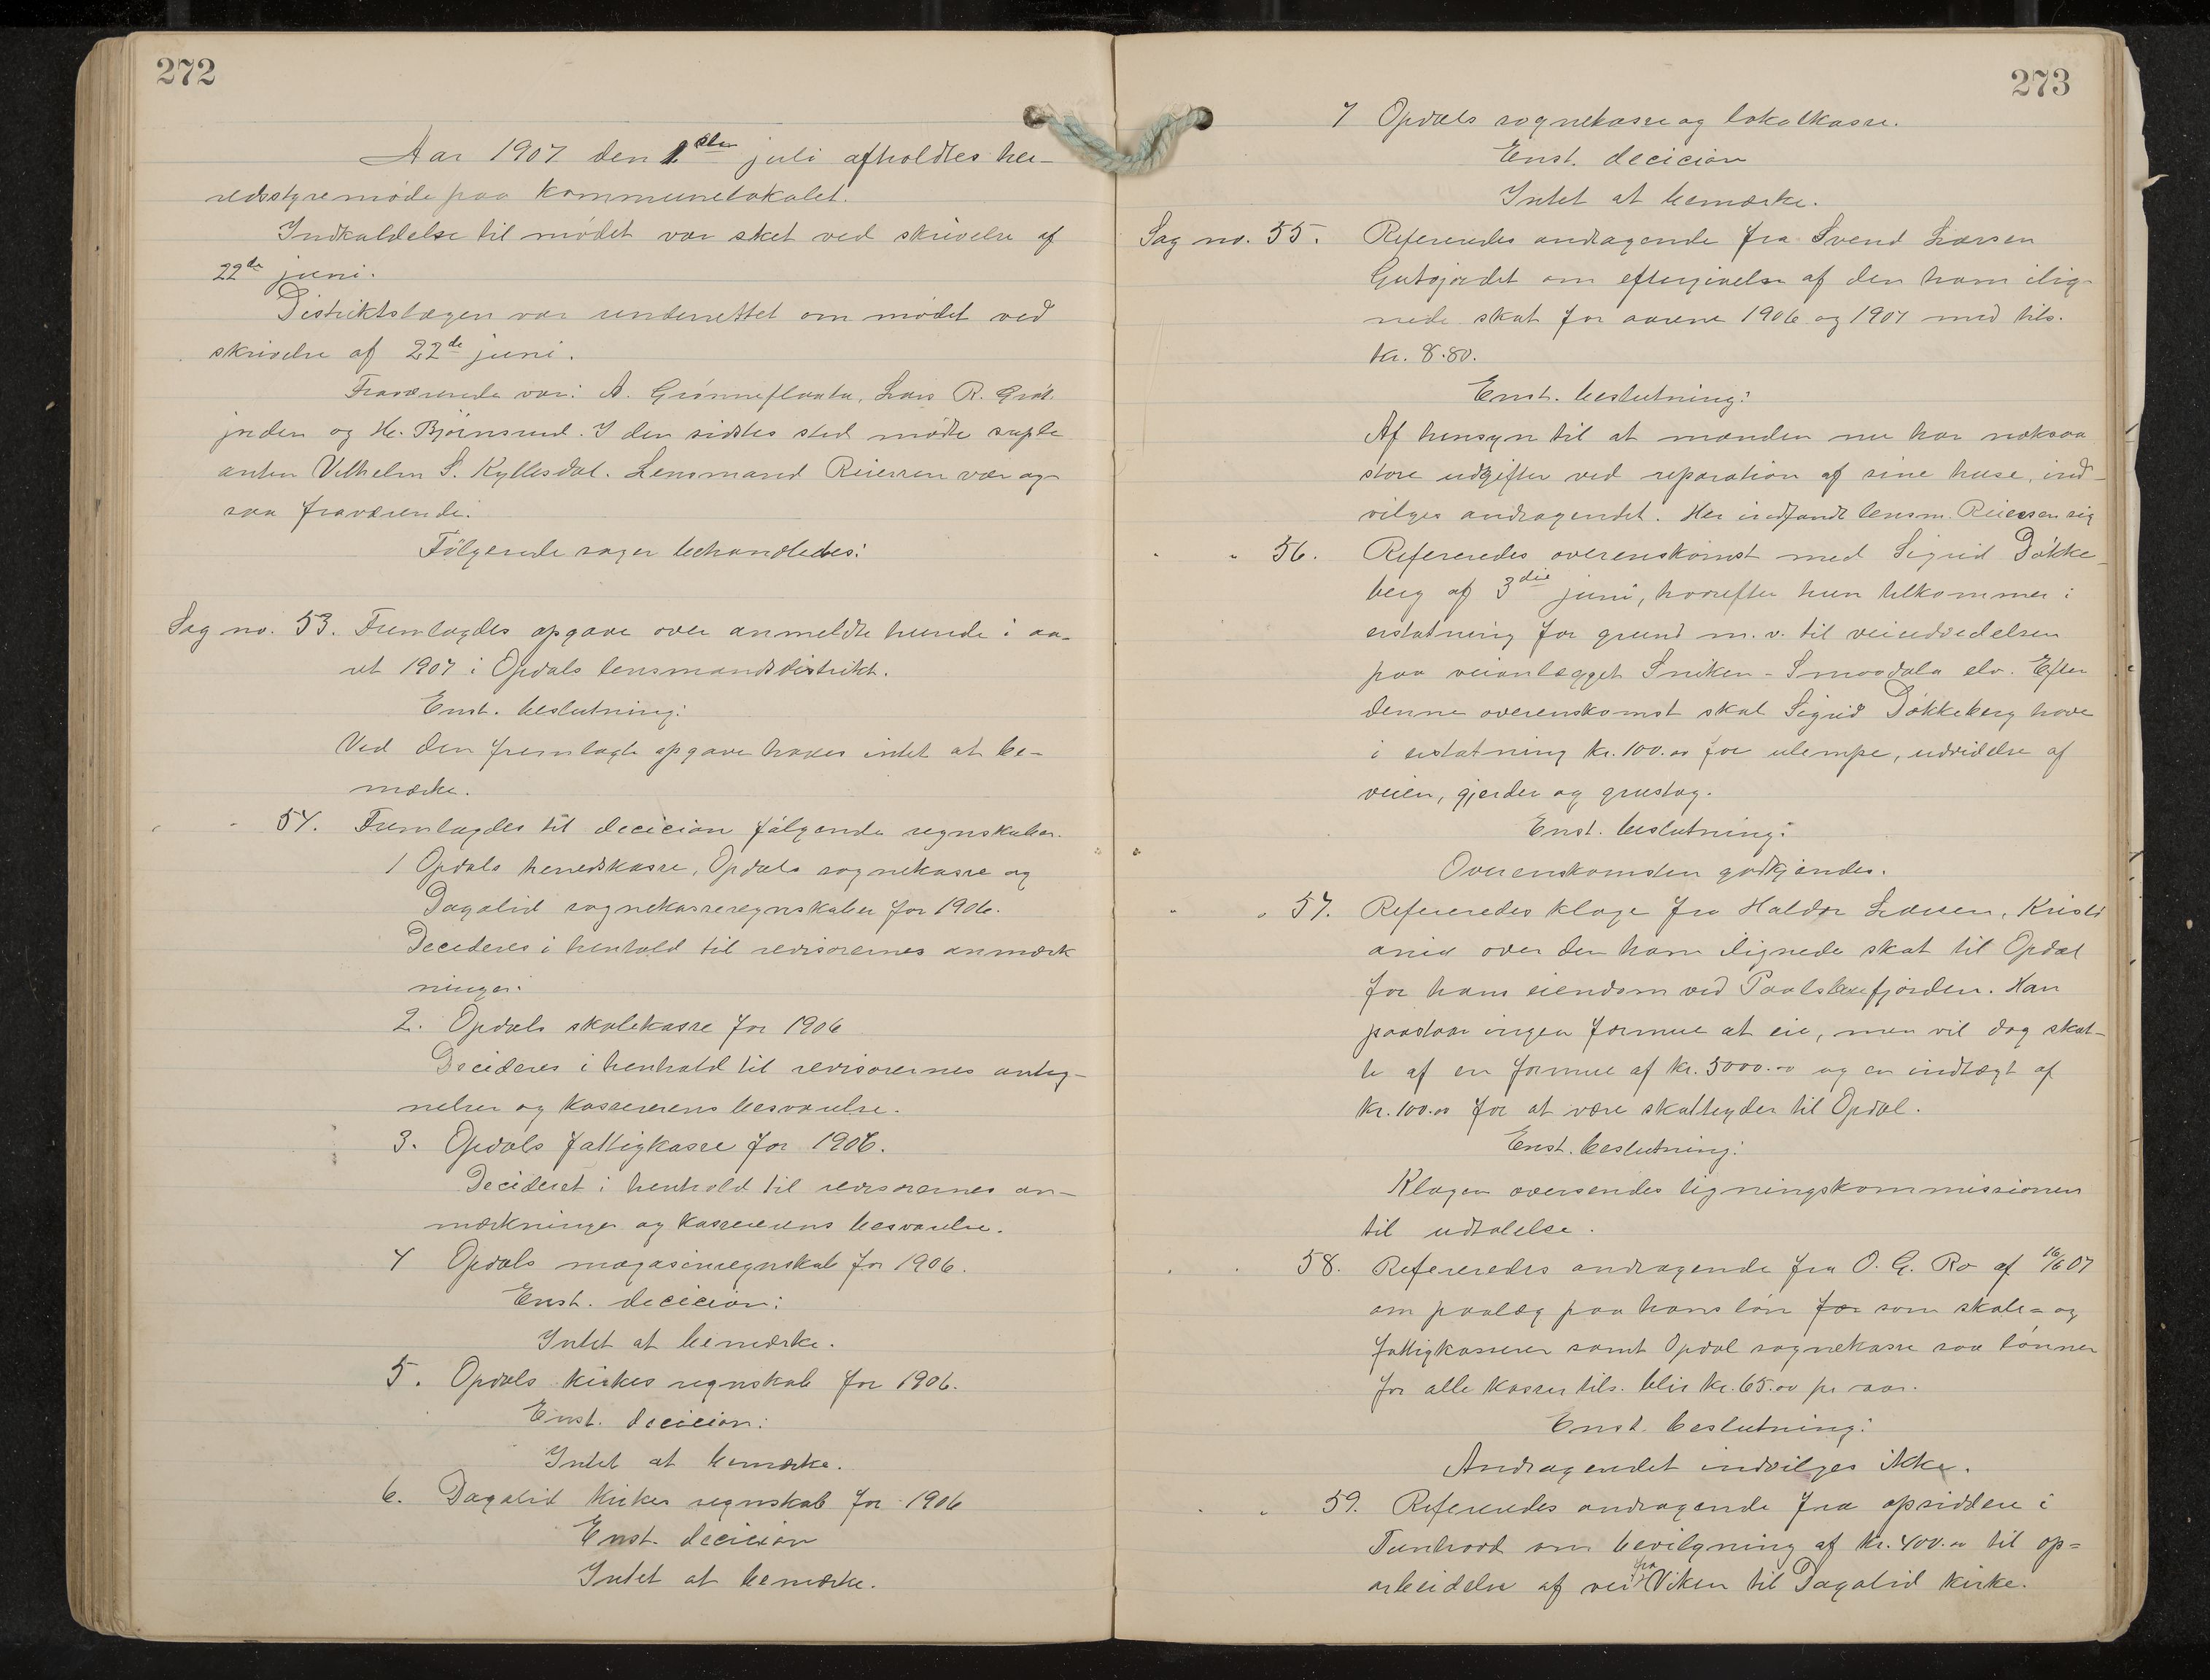 272
Aar 1907 den 1ste juli afholdtes her-
redsstyremøde paa kommunelokalet.
Indkaldelse til mødet var sket ved skrivelse af
22de juni.
Distriktslægen var underrettet om mødet ved
skrivelse af 22de juni.
Fraværende var: A. Grønneflaata, Lars R.
jorden og H. Bjørnsrud. I den sidstes sted mødte suple
anten Vilhelm S. Kyllesdal. Lensmand Reiersen var og-
saa fraværende.
Følgende sager behandledes:
Sag no. 53. Fremlagdes opgave over anmeldte hunde i aa-
ret 1907 i Opdals lensmandsdistrikt.
Enst. beslutning:
Ved den fremlagte opgave haves intet at be-
mærke.
" " 54. Fremlagdes til decicion følgende regnskaber.
1 Opdals herredskasse, Opdals sognekasse og
Dagalid sognekasseregnskaber for 1906.
Decideres i henhold til revisorernes anmærk
ninger.
2. Opdals skolekasse for 1906
Decideres i henhold til revisorernes anteg-
nelser og kassererens besvarelse.
3. Opdals fattigkasse for 1906.
Decideret i henhold til revisorernes an-
mærkninger og kassererens besvarelse.
4 Opdals magasinregnskab for 1906.
Enst. decicion:
Intet at bemærke.
5. Opdals kirkes regnskab for 1906.
Enst. decicion:
Intet at bemærke.
6. Dagalid kirkes regnskab for 1906
Enst. decicion
Intet at bemærke.
273
7 Opdals sognekasse og lokalkasse.
Enst. decicion
Intet at bemærke.
Sag no. 55. Refereredes andragende fra Svend Larsen
Gutøjordet om eftergivelse af den ham ilig-
nede skat for aarene 1906 og 1907 med tils.
kr. 8.80.
Enst. beslutning:
Af hensyn til at manden nu har noksaa
store udgifter ved reparation af sine huse, ind-
vilges andragendet. Her indfandt lensm. Reiersen sig
" " 56. Refereredes overenskomst med Sigrid Døkke-
berg af 3die juni, hvorefter hun tilkommer i
erstatning for grund m. v. til veiudvidelsen
paa veianlægget Sniken - Smaadøla elv. Efter
denne overenskomst skal Sigrid Døkkeberg have
i erstatning kr. 100.00 for ulempe, udvidelse af
veien, gjerder og grustag.
Enst. beslutning:
Overenskomsten godkjendes.
" " 57. Refereredes klage fra Haldor Larsen, Kristi
ania over den ham ilignede skat til Opdal
for hans eiendom ved Paalsbufjorden. Han
paastaar ingen formue at eie, men vil dog skat-
te af en formue af kr. 5000.00 og en indtægt af
kr. 100.00 for at være skatteyder til Opdal.
Enst. beslutning:
Klagen oversendes ligningskommissionen
til udtalelse.
" " 58. Refereredes andragende fra O. G. Ro af 16/6 07
om paalæg paa hans løn for som skole- og
fattigkasserer samt Opdal sognekasse saa lønnen
for alle kasser tils. blir kr. 65.00 pr aar.
Enst. beslutning:
Andragendet indvilges ikke.
" " 59. Refereredes andragende fra opsiddere i
Tunhovd om bevilgning af kr. 400.00 til op-
arbeidelse af vei fra Viken til Dagalid kirke.